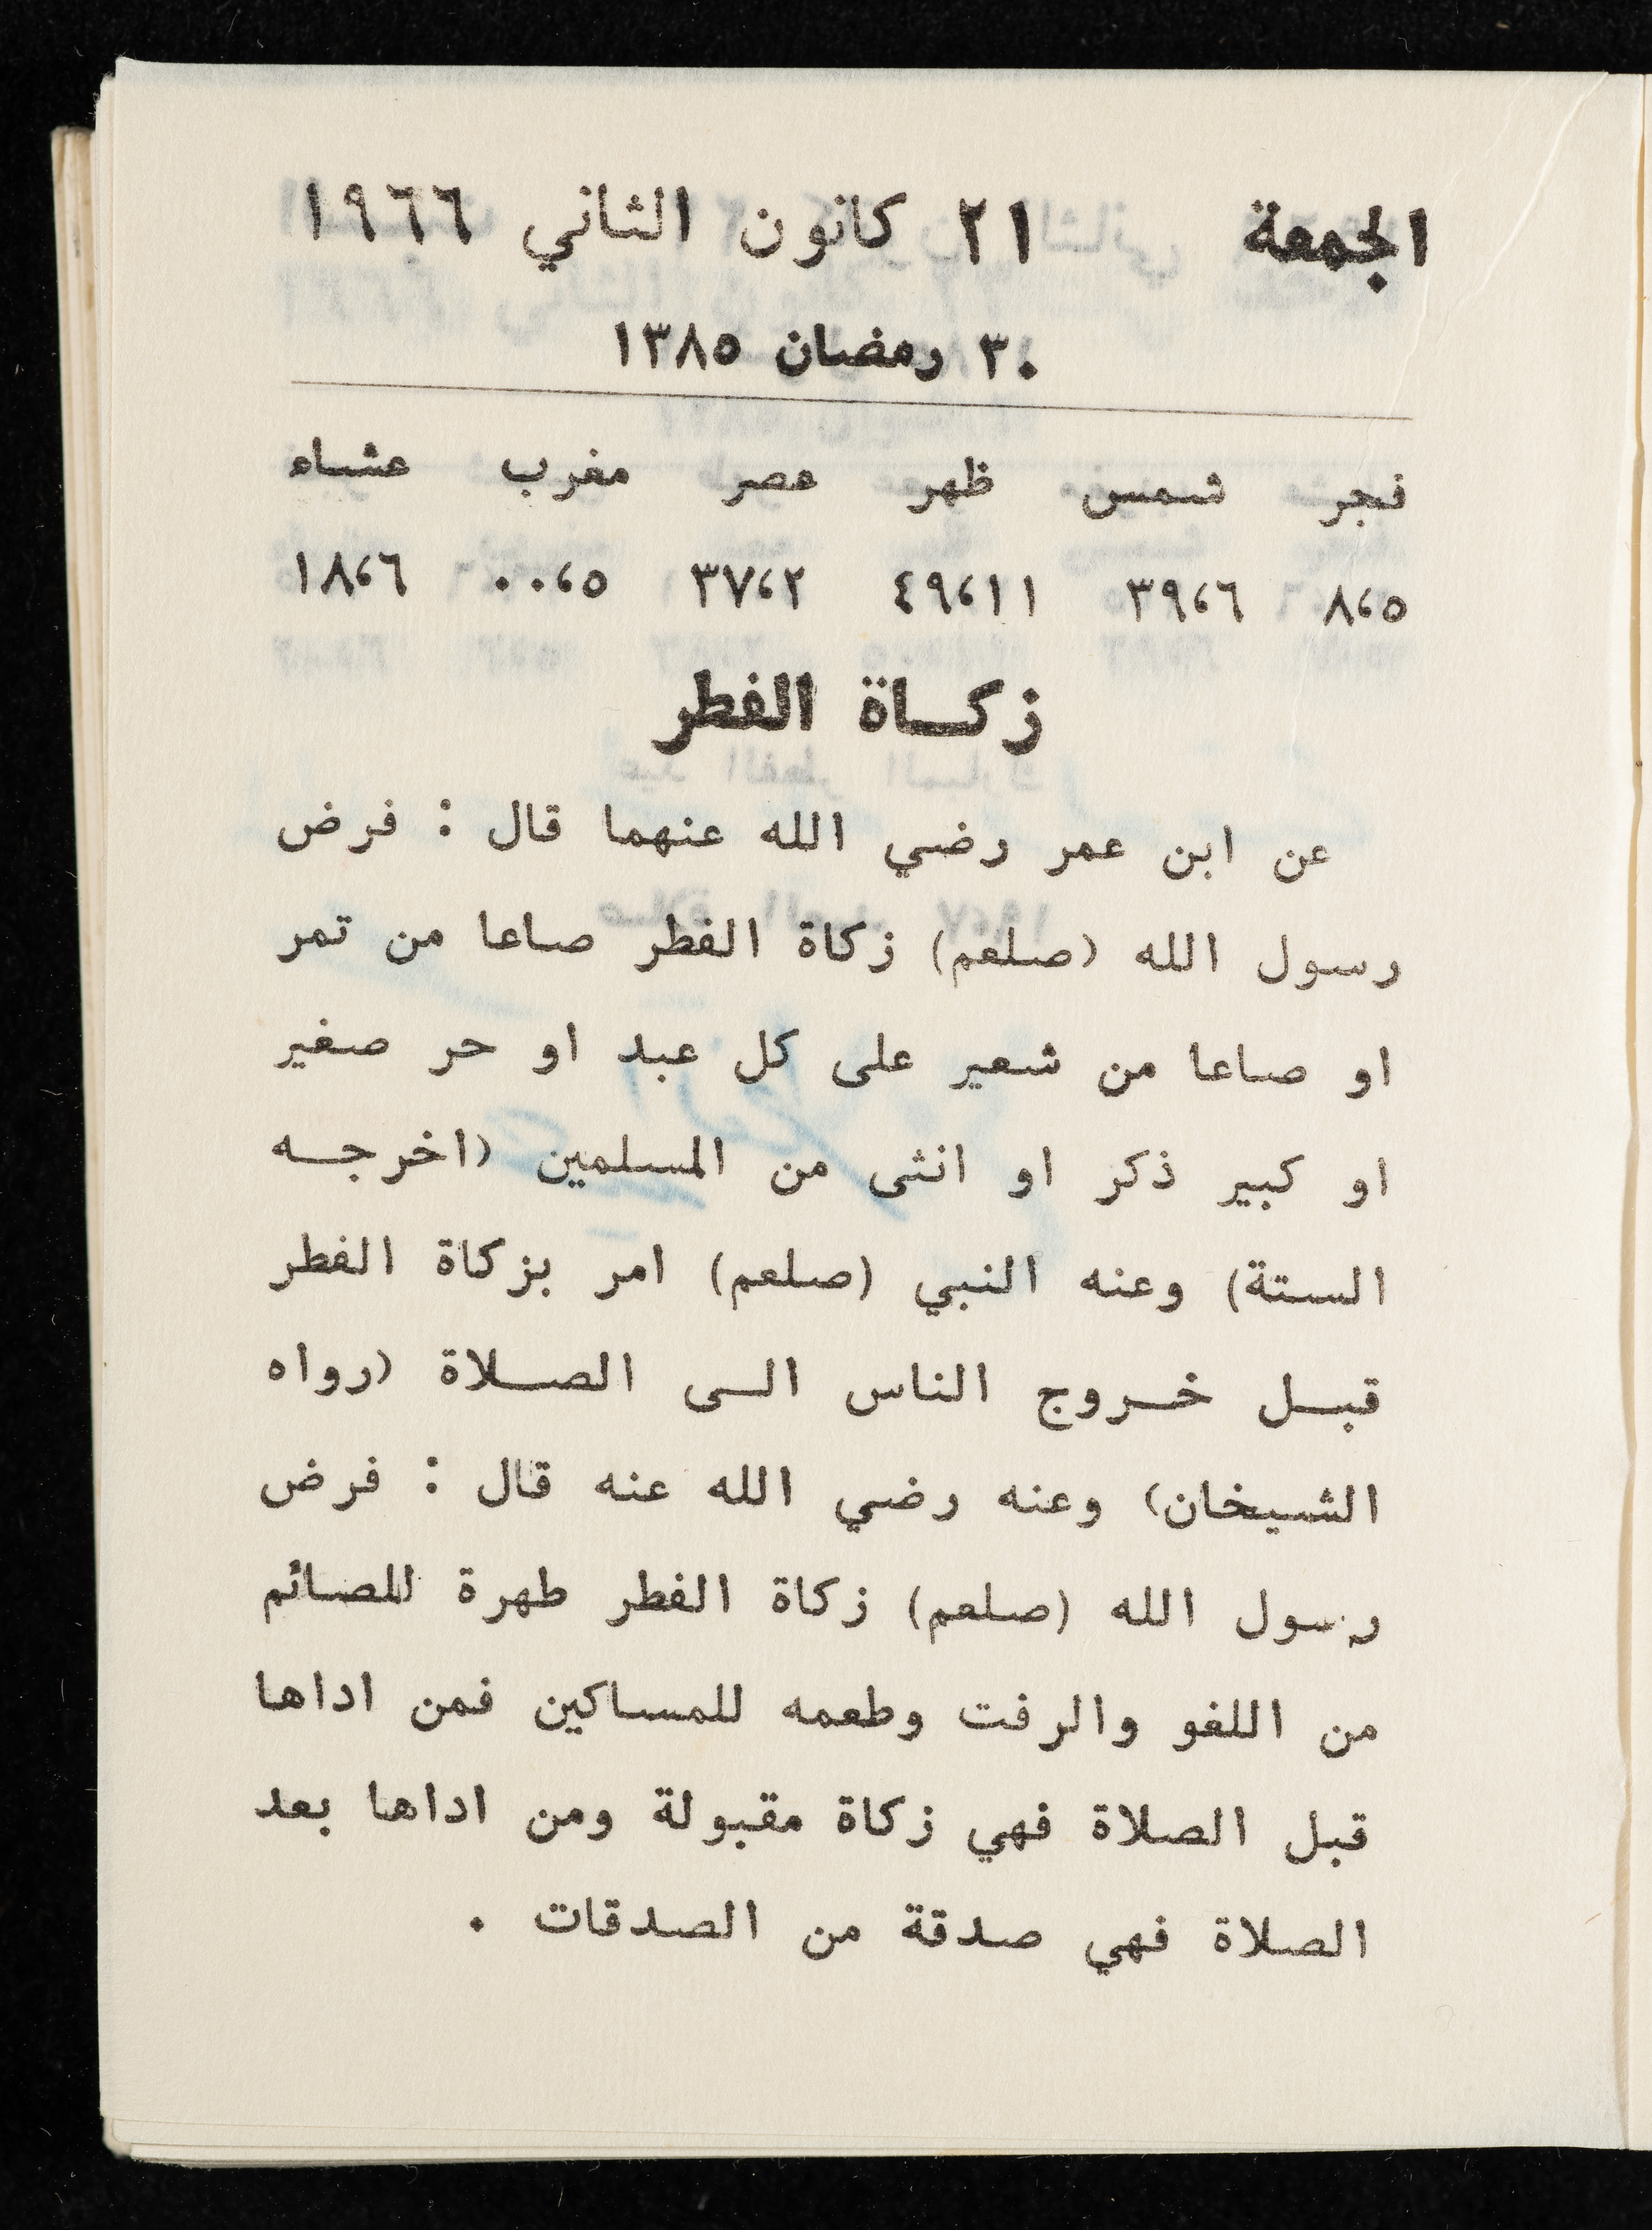 الجمعة ٢١ كانون الثاني ١٩٦٦
٣٠ رمضان ١٣٨٥
فجر شمس ظهر عصر مغرب عشاء
٨،٥ ٣٩،٦ ٤٩،١١ ٣٧،٢ ٠٠،٥ ١٨،٦
زكاة الفطر
عن ابن عمر رضي الله عنهما قال : فرض
رسول الله (صلعم) زكاة الفطر صاعا من تمر
او صاعا من شعير على كل عبد او حر صغير
او كبير ذكر او انثى من المسلمين (اخرجه
الستة) وعنه النبي (صلعم) امر بزكاة الفطر
قبل خروج الناس الى الصلاة (رواه
الشيخان) وعنه رضي الله عنه قال : فرض
رسول الله (صلعم) زكاة الفطر طهرة للصائم
من اللغو والرفت وطعمه للمساكين فمن اداها
قبل الصلاة فهي زكاة مقبولة ومن اداها بعد
الصلاة فهي صدقة من الصدقات .